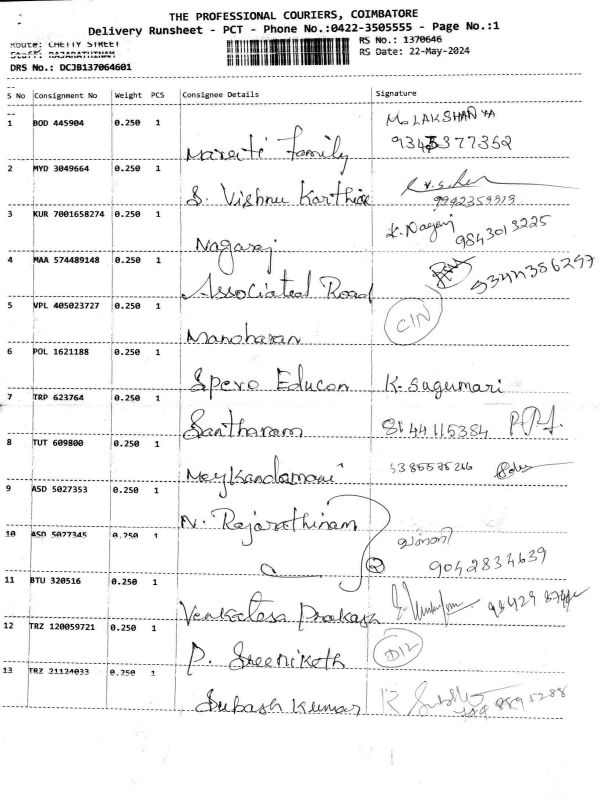 THE PROFESSIONAL COURIERS, COIMBATORE
Delivery Runsheet - PCT - Phone No.:0422-3505555 - Page No.:1
Route: CHETTY STREET RS No.: 1370646
Staff: RAJARATHINAM RS Date: 22-May-2024
DRS No.: DCJB137064601
S No Consignment No Weight PCS Consignee Details Signature
1 BOD 445904 0.250 1 Family M. LAKSHANYA
2 MYD 3049664 0.250 1 S. Vishnu Karthik 9942359919
3 KUR 7001658274 0.250 1 Nagaraj K. Nagaraj 9843013225
4 MAA 574489148 0.250 1 Associated Road 9344386297
5 VPL 405023727 0.250 1 Manoharan CIN
6 POL 1621188 0.250 1 Spero Educon K. Sugumari
7 TRP 623764 0.250 1 Santharam 8144115384
8 TUT 609800 0.250 1 Meykandamani
9 ASD 5027353 0.250 1 N. Rajarathinam
10 ASD 5027345 0.250 1 2 9042834639
11 BTU 320516 0.250 1 Venkatesa Prakash
12 TRZ 120059721 0.250 1 P. Sreeniketh D/L
13 TRZ 21124033 0.250 1 Subash Kumar